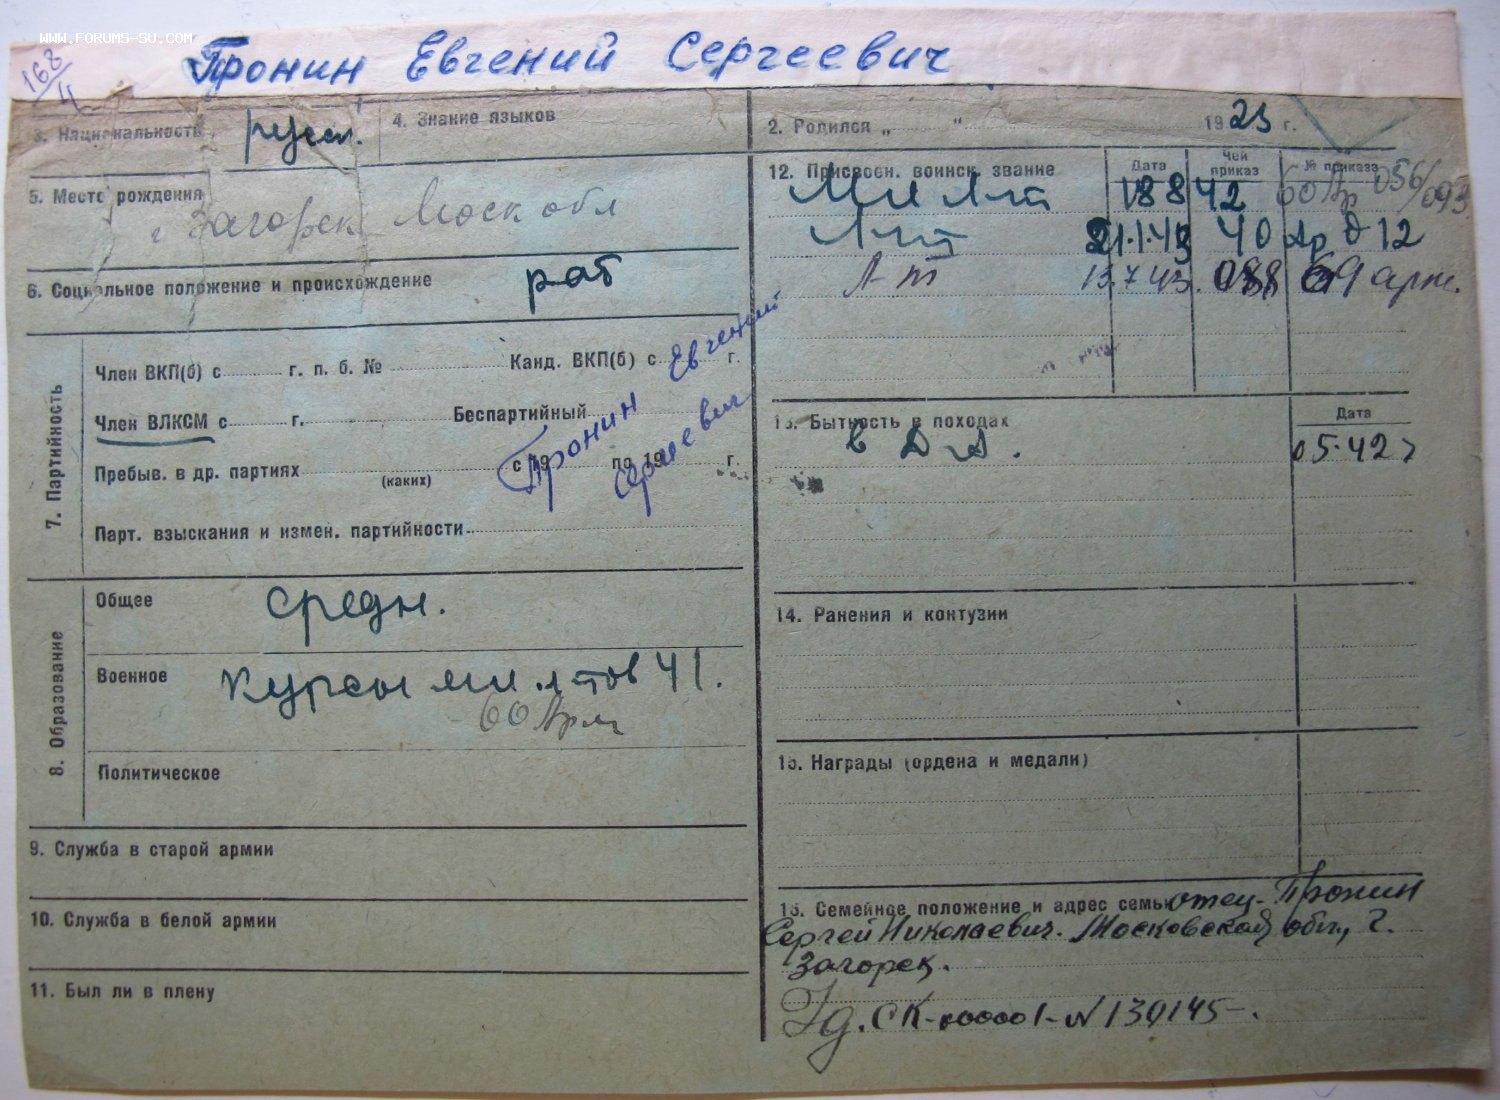 www.forums-su.com
168/11
Пронин Евгений Сергеевич
3. Национальность русск.
4. Знание языков
2. Родился „ “ 1923 г.
5. Место рождения
г Загорск Моск обл
6. Социальное положение и происхождение раб
7. Партийность
Член ВКП(б) с г. п. б. № Канд. ВКП(б) с г.
Член ВЛКСМ с г. Беспартийный
Пребыв. в др. партиях (каких) с 19 по 19 г.
Пронин Евгений
Сергеевич
Парт. взыскания и измен. партийности
8. Образование
Общее средн.
Военное Курсы мл л-тов 41.
60 Арм
Политическое
9. Служба в старой армии
10. Служба в белой армии
11. Был ли в плену
12. Присвоен. воинск. звание Дата Чей приказ № приказа
Мл л-т 18 8 42 60 Ар 056/093
Л-т 21.1.43 40 Ар 012
Л-т 13.7.43. 69 арм.
13. Бытность в походах Дата
в ДА. 05.42
14. Ранения и контузии
15. Награды (ордена и медали)
16. Семейное положение и адрес семьи отец - Пронин
Сергей Николаевич. Московская обл., г.
Загорск.
Уд. СК-000001-N130145-.